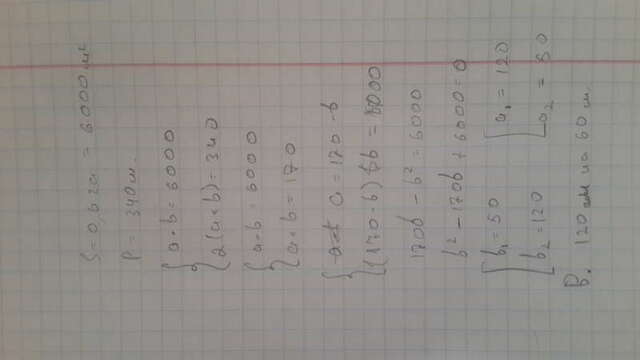 S = 0,6 га = 6000 м²
P = 340 м.
{ a · b = 6000
2(a+b) = 340
{ a · b = 6000
a+b = 170
{ a = 170 - b
(170 - b) b = 6000
170b - b² = 6000
b² - 170b + 6000 = 0
[ b₁ = 50 [ a₁ = 120
b₂ = 120 a₂ = 50
120 м на 60 м.